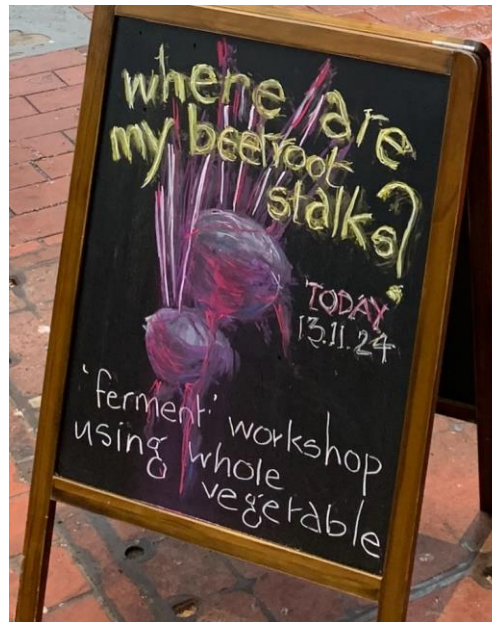 where are
my beetroot
stalks?
TODAY
13.11.24
'ferment' workshop
using whole
vegetable